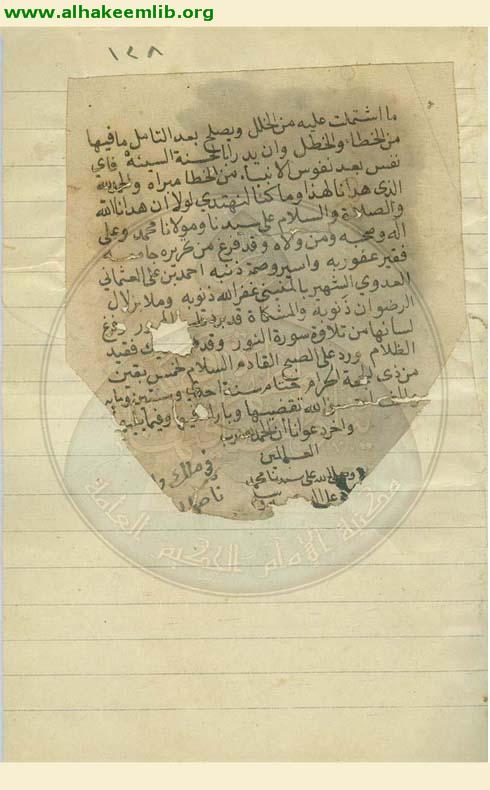 www.alhakeemlib.org
١٣٨
ما اشتملت عليه من الخلل ويصلح بعد التامل ما فيها
من الخطاء والخطل وان يدرنا بالحسنة السيئة فاي
نفس بعد نفوس الانبياء من الخطا مبراه والحمد لله
الذي هدانا لهذا وما كنا لنهتدي لولا ان هدانا الله
والصلاة والسلام على سيدنا ومولانا محمد وعلى
اله وصحبه ومن والاه وقد فرغ من تحريره جامعه
فقير عفو ربه واسير وصمة ذنبه احمد بن علي العثماني
العدوي الشهير بالمنيني غفر الله ذنوبه وملا بزلال
الرضوان ذنوبه والمشكاة قد برد
لسانها من تلاوة سورة النور وقد فقيد
الظلام ورد على الصبح القادم السلام لخمس بقين
من ذي الحجة الحرام ختام سنة احدى وستين ومايه
الله تقضيها وبارك
واخر دعوانا ان الحمد لله رب
العالمين
وصلى الله على سيدنا محمد
وعلى اله
في ملك
مكتبة الإمام الحكيم العامة